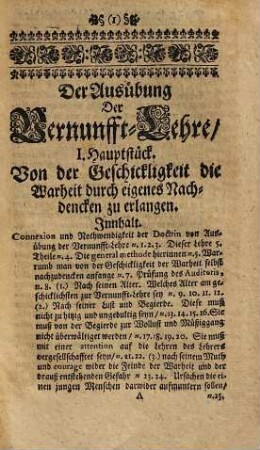 (1)
Der Ausübung
Der
Vernunfft-Lehre/
I. Hauptstück.
Von der Geschickligkeit die
Warheit durch eigenes Nach-
dencken zu erlangen.
Innhalt.
Connexion und Nothwendigkeit der Doctrin von Aus-
übung der Vernunfft-Lehre n. 1. 2. 3. Dieser Lehre 5.
Theile n. 4. Die general methode hierinnen n. 5. Wa-
rumb man von der Geschickligkeit der Warheit selbst
nachzudencken anfange n. 7. Prüfung des Auditoris,
n. 8. (1.) Nach seinen Alter. Welches Alter am ge-
schicklichsten zur Vernunfft-Lehre sey n. 9. 10. 11. 12.
(2.) Nach seiner Lust und Begierde. Diese muß
nicht zu hitzig und ungedultig seyn/ n. 13. 14. 15. 16. Sie
muß von der Begierde zur Wollust und Müßiggang
nicht überwältiget werden/ n. 17. 18. 19. 20. Sie muß
mit einer attention auf die Lehren des Lehrers
vergesellschafftet seyn/ n. 21. 22. (3.) nach seinem Muth
und courage wider die Feinde der Warheit und der
drauß entstehenden Gefahr n. 23. 24. Ursachen die ei-
nen jungen Menschen darwider auffmuntern sollen/
A n. 25.